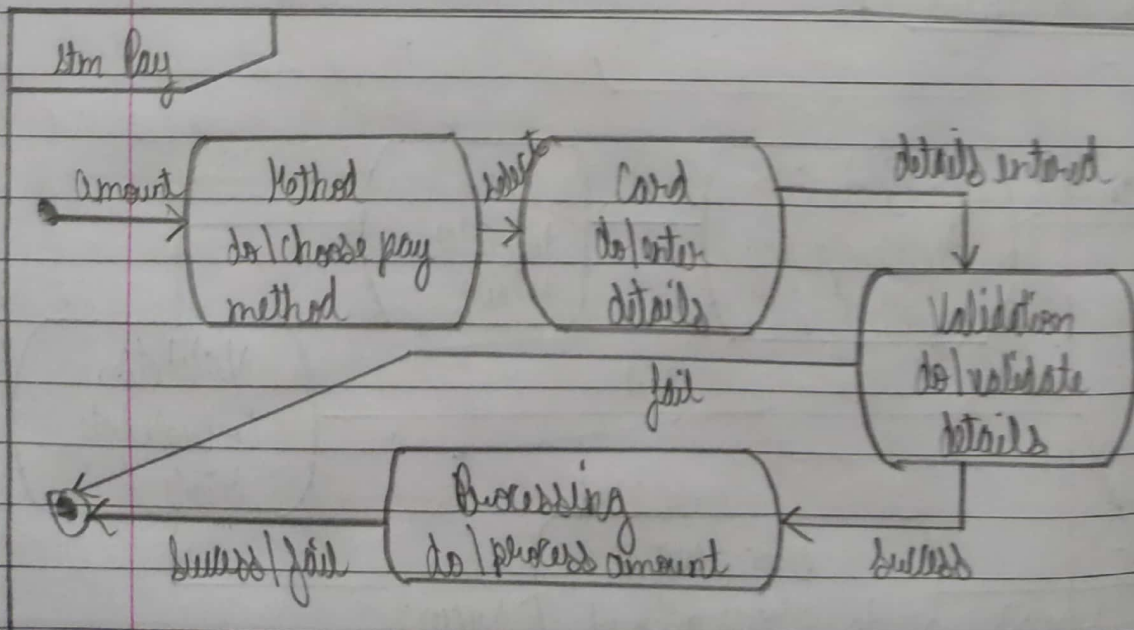 stm Pay
amount
Method
do/choose pay
method
select
Card
do/enter
details
details entered
Validation
do/validate
details
fail
Processing
do/process amount
success/fail
success